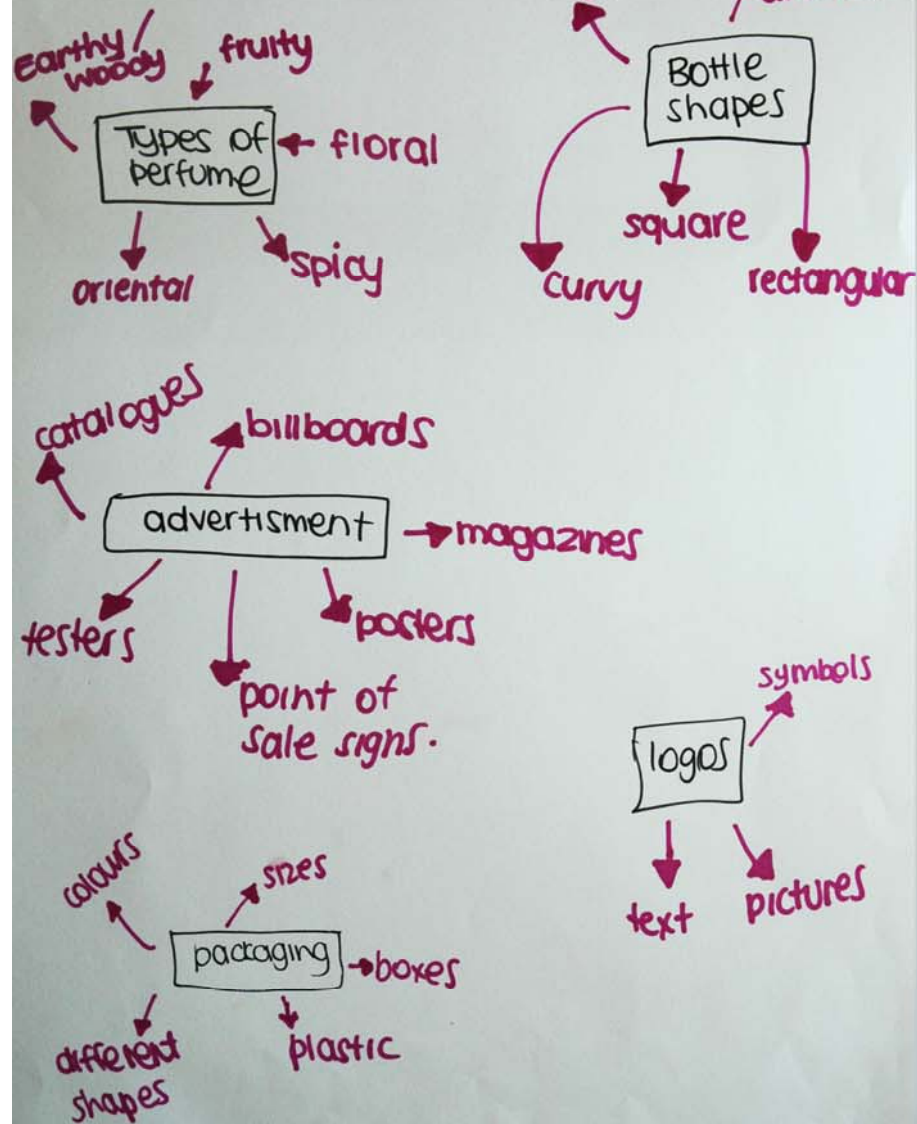 Earthy/
woody
fruity
Types of
perfume
floral
oriental
spicy
Bottle
shapes
square
curvy
rectangular
catalogues
billboards
advertisment
magazines
testers
posters
point of
sale signs.
symbols
logos
text
pictures
colours
sizes
packaging
boxes
different
shapes
plastic